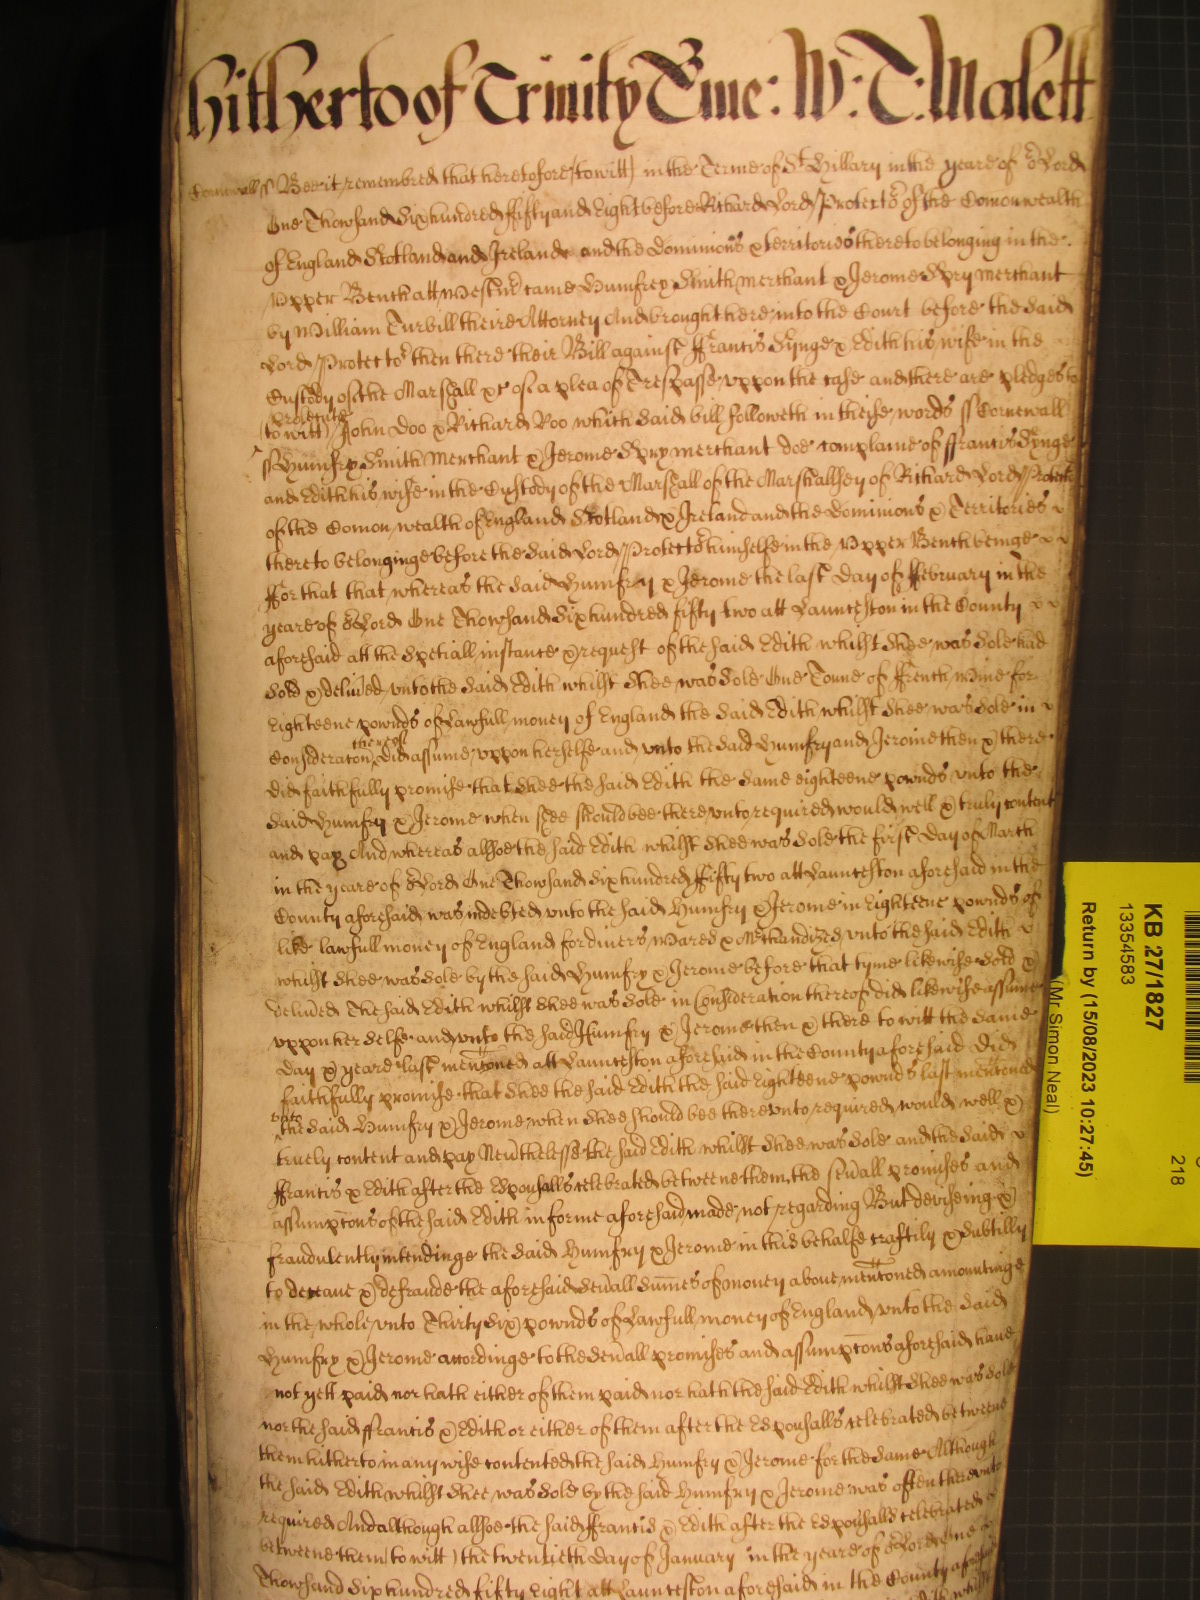 hitherto of Trinity Tme: W: T: Malett
Cornwall ss Bee it remembred that heretofore (to witt) in the Terme of St Hillary in the yeare of or Lord
One Thowsand Six hundred ffifty and Eight before Richard Lord Protector of the Comonwealth
of England Scotland and Ireland and the Dominions & territories thereto belonging in the
Upper Bench att Westmr came Humfrey Smith merchant & Jerome Spry merchant
by William Turbill their Attorney And brought here into the Court before the said
Lord Protector then there their Bill against ffrancis Synge & Edith his wife in the
Custody of the Marshall &c of a plea of Trespasse uppon the case and there are pledges to
prosecute
(to witt) John Doo & Richard Roo which said bill followeth in theise words ss Cornewall
ss Humfry Smith Merchant & Jerome Spry merchant doe complaine of ffrancis Synge
and Edith his wife in the Custody of the Marshall of the Marshallsey of Richard Lord Protector
of the Comon wealth of England Scotland & Ireland and the Dominions & Territories
thereto belonginge before the said Lord Protector himselfe in the Upper Bench beinge
ffor that that whereas the said Humfry & Jerome the last day of ffebruary in the
yeare of or Lord One Thowsand Six hundred fifty two att Launceston in the County
aforesaid att the speciall instance & request of the said Edith whilst shee was sole had
sold & delivred unto the said Edith whilst shee was sole One Tonne of ffrench Wine for
Eighteene pownds of Lawfull money of England the said Edith whilst shee was sole in
thereof
Consideraton did assume uppon herselfe and unto the said Humfry and Jerome then & there
did faithfully promise that shee the said Edith the same eighteene pownds unto the
said Humfry & Jerome when shee should bee thereunto required would well & truly content
and pay And whereas allsoe the said Edith whilst shee was sole the first day of March
in the yeare of or Lord One Thowsand Six hundred ffifty two att Launceston aforesaid in the
County aforesaid was indebted unto the said Humfry & Jerome in Eighteene pownds of
like lawfull money of England for divers Wares & Merchandizes unto the said Edith
whilst shee was sole by the said Humfry & Jerome before that tyme likewise sold &
delivred The said Edith whilst shee was sole in Consideration thereof did likewise assume
uppon her selfe and unto the said Humfry & Jerome then & there to witt the same
day & yeare last mentoned att Launceston aforesaid in the County aforesaid did
faithfully promise that shee the said Edith the said Eighteene pownds last mentoned
unto
the said Humfry & Jerome when shee should bee thereunto required would well &
truely content and pay Nevthelesse the said Edith whilst shee was sole and the said
ffrancis & Edith after the Espousalls celebrated betweene them the sevall promises and
assumptons of the said Edith in forme aforesaid made not regarding But deviseing &
fraudulently intendinge the said Humfry & Jerome in this behalfe craftily & subtilly
to deceave & defraude the aforesaid sevall summes of money above mentoned amountinge
in the whole unto Thirty six pownds of Lawfull money of England unto the said
Humfry & Jerome accordinge to the sevall promises and assumptons aforesaid have
not yett paid nor hath either of them paid nor hath the said Edith whilst shee was sole
nor the said ffrancis & Edith or either of them after the Espousalls celebrated betweene
them hitherto in any wise contented the said Humfry & Jerome for the same Although
the said Edith whilst shee was sole by the said Humfry & Jerome was often thereunto
required And although allsoe the said ffrancis & Edith after the Espousalls celebrated
betweene them (to witt) the twentieth day of January in the yeare of or Lord One
Thowsand Six hundred fifty Eight att Launceston aforesaid in the County aforesaid
KB 27/1827
13354583
Return by (15/08/2023 10:27:45)
(Mr Simon Neal)
218